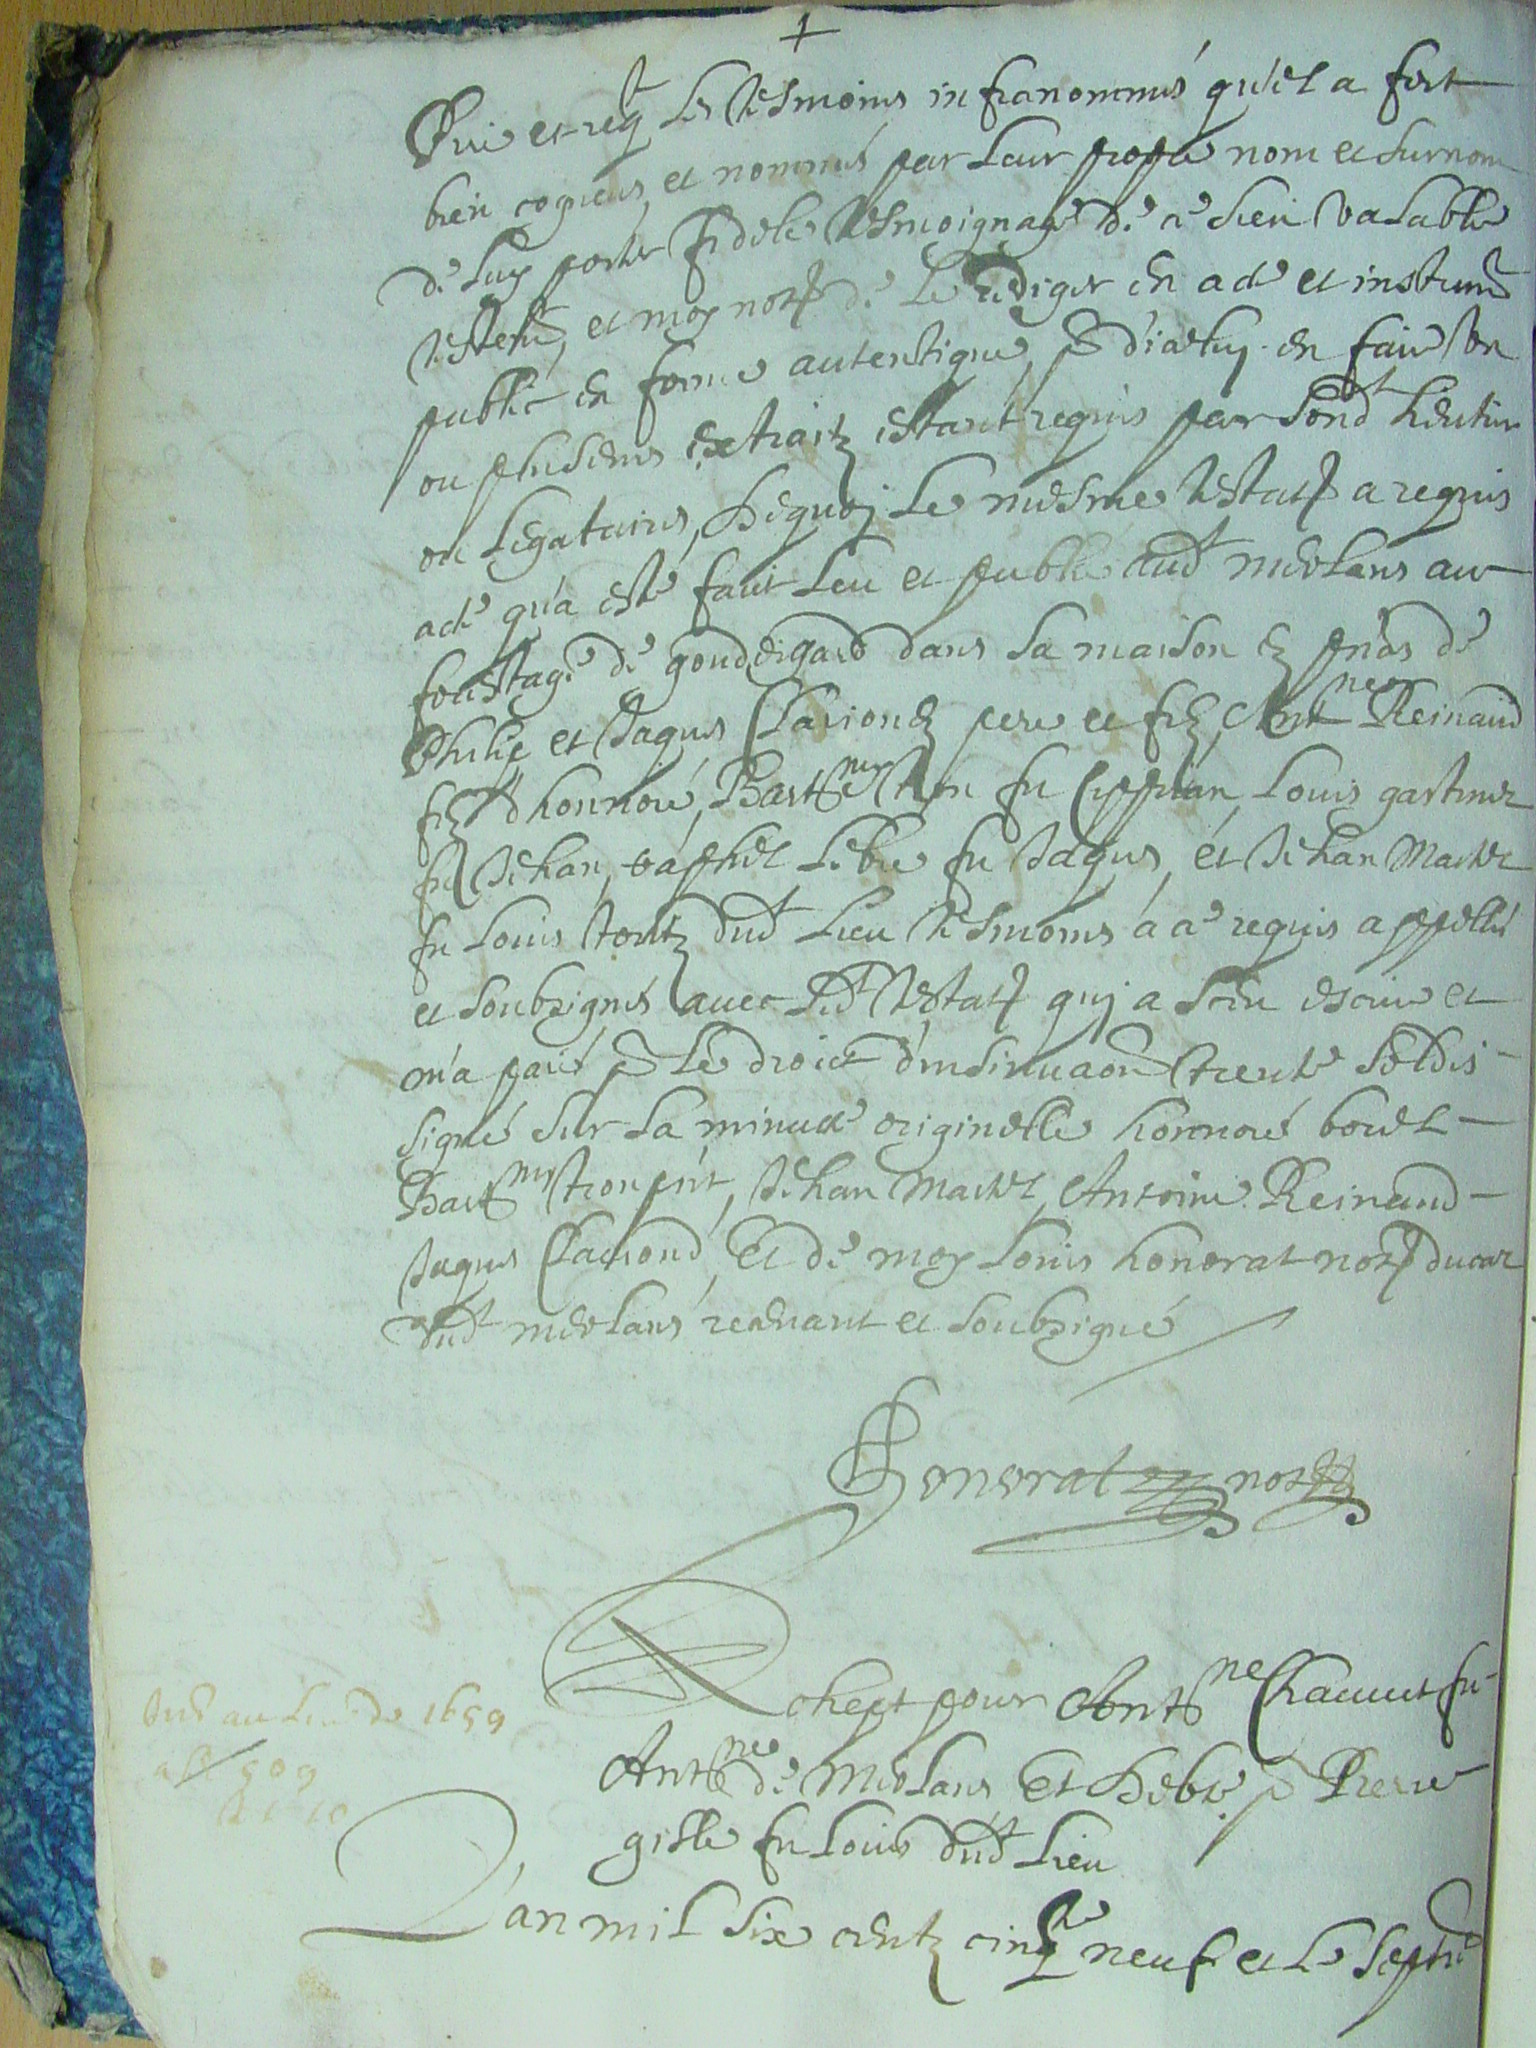 Prie et req^t les tesmoins infranommés qu'il a fort
bien cogneus, et nommés par leur propre nom et surnom
de luy porter fidele tesmoignage de ce sien valable
testem^t, et moy not^re de le rediger en acte et instrum^t
public en forme autentique, p^r d'iceluy en faire un
ou plusieurs extraitz estant requis par sond^t heritier
ou legataires, dequoy le mesme testat^r a requis
acte qu'a esté fait leu et publié aud^t meolans au
forestage de goudeigard dans sa maison ez pñces de
Philip et Jaques Clariondz pere et filz, Ant^ne Reinaud
filz d'honnoré, Barth^my Tron fu Ciprian, Louis gastinel
fu Jehan, raphel Lebre fu Jaques, et Jehan Martel
fu Louis toutz dud^t lieu tesmoins a ce requis appellés
et soubzignés avec led^t testat^r quj a sceu escrire et
m'a paié p^r le droict d'insinuaon trente soldis
signé sur la minutte originelle honnoré borel
Barth^my tron pñt, Jehan Martel, Antoine Reinaud
Jaques Clariond, Et de moy Louis honorat not^re ducal
dud^t meolans recevant et soubzigné
Honorat not^re
Achept pour Anth^ne Chauvet fu
Anth^ne de Meolans Et Debte p^r Pierre
gille fu Louis dud^t lieu
au de 1659
509
L'an mil six centz cinq^te neuf et le septie^